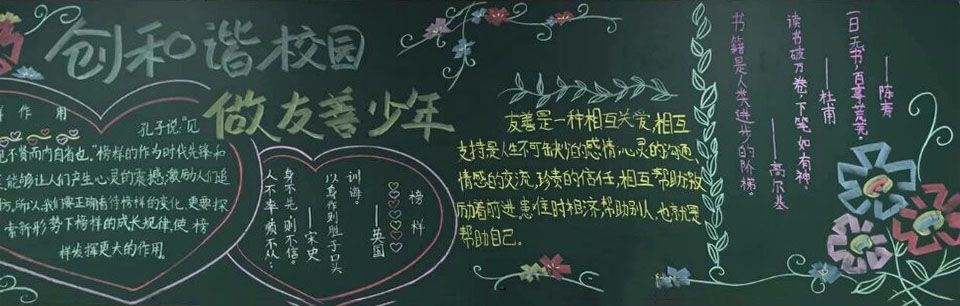 创和谐校园
做友善少年
样作用
孔子说:“见
见不贤而内自省也。”榜样的作为时代先锋和
能够让人们产生心灵的震撼,激励人们追
所以,我们要正确看待榜样的变化,更要探
索新形势下榜样的成长规律,使榜
样发挥更大的作用。
榜样
——英国
训诲。
以身作则胜于口头
——宋史
身不先,则不信。
人不率,则不从;
友善是一种相互关爱,相互
支持是人生不可缺少的感情,心灵的沟通、
情感的交流,珍贵的信任,相互帮助,鼓
励着前进,患难时相济帮助别人,也就是
帮助自己。
一日无书,百事荒芜。
——陈寿
读书破万卷,下笔如有神。
——杜甫
书籍是人类进步的阶梯。
——高尔基